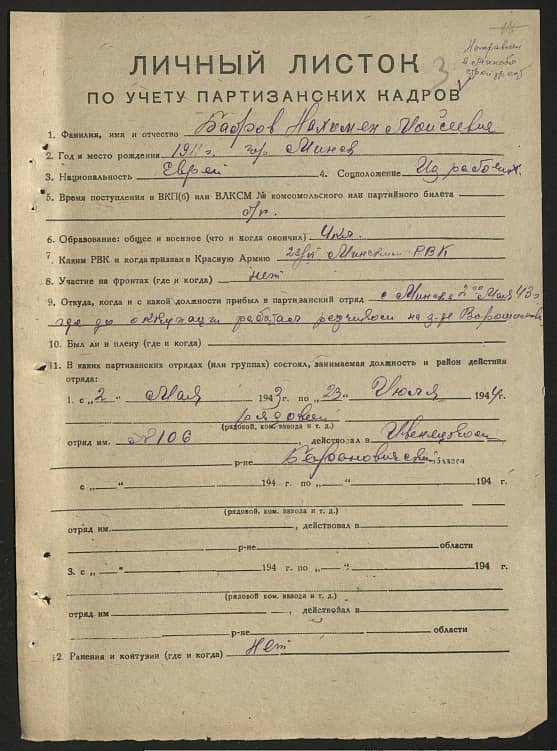 Направлен
в Минский
ЛИЧНЫЙ ЛИСТОК
3
ПО УЧЕТУ ПАРТИЗАНСКИХ КАДРОВ
1. Фамилия, имя и отчество Бадров Нахимен Мойсеевич
2. Год и место рождения 1911 г. гор. Минск
3. Национальность Еврей 4. Соцположение Из рабочих.
5. Время поступления в ВКП(б) или ВЛКСМ № комсомольского или партийного билета
б/п.
6. Образование: общее и военное (что и когда окончил) 4 кл.
7. Каким РВК и когда призван в Красную Армию Минским РВК
8. Участие на фронтах (где и когда) нет
9. Откуда, когда и с какой должности прибыл в партизанский отряд с Минска 2го Мая 43 г.
где до оккупации работал на з-де Ворошилова
10. Был ли в плену (где и когда)
11. В каких партизанских отрядах (или группах) состоял, занимаемая должность и район действия
отряда:
1. с „2“ Мая 1943 г. по „23“ Июля 1944 г.
рядовой
(рядовой, ком. взвода и т. д.)
отряд им. № 106, действовал в Ивенецком
р-не Барановичской области
с „ “ 194 г. по „ “ 194 г.
(рядовой, ком. взвода и т. д.)
отряд им. , действовал в
р-не области
3. с „ “ 194 г. по „ “ 194 г.
(рядовой, ком. взвода и т. д.)
отряд им , действовал в
р-не области
12. Ранения и контузии (где и когда) Нет